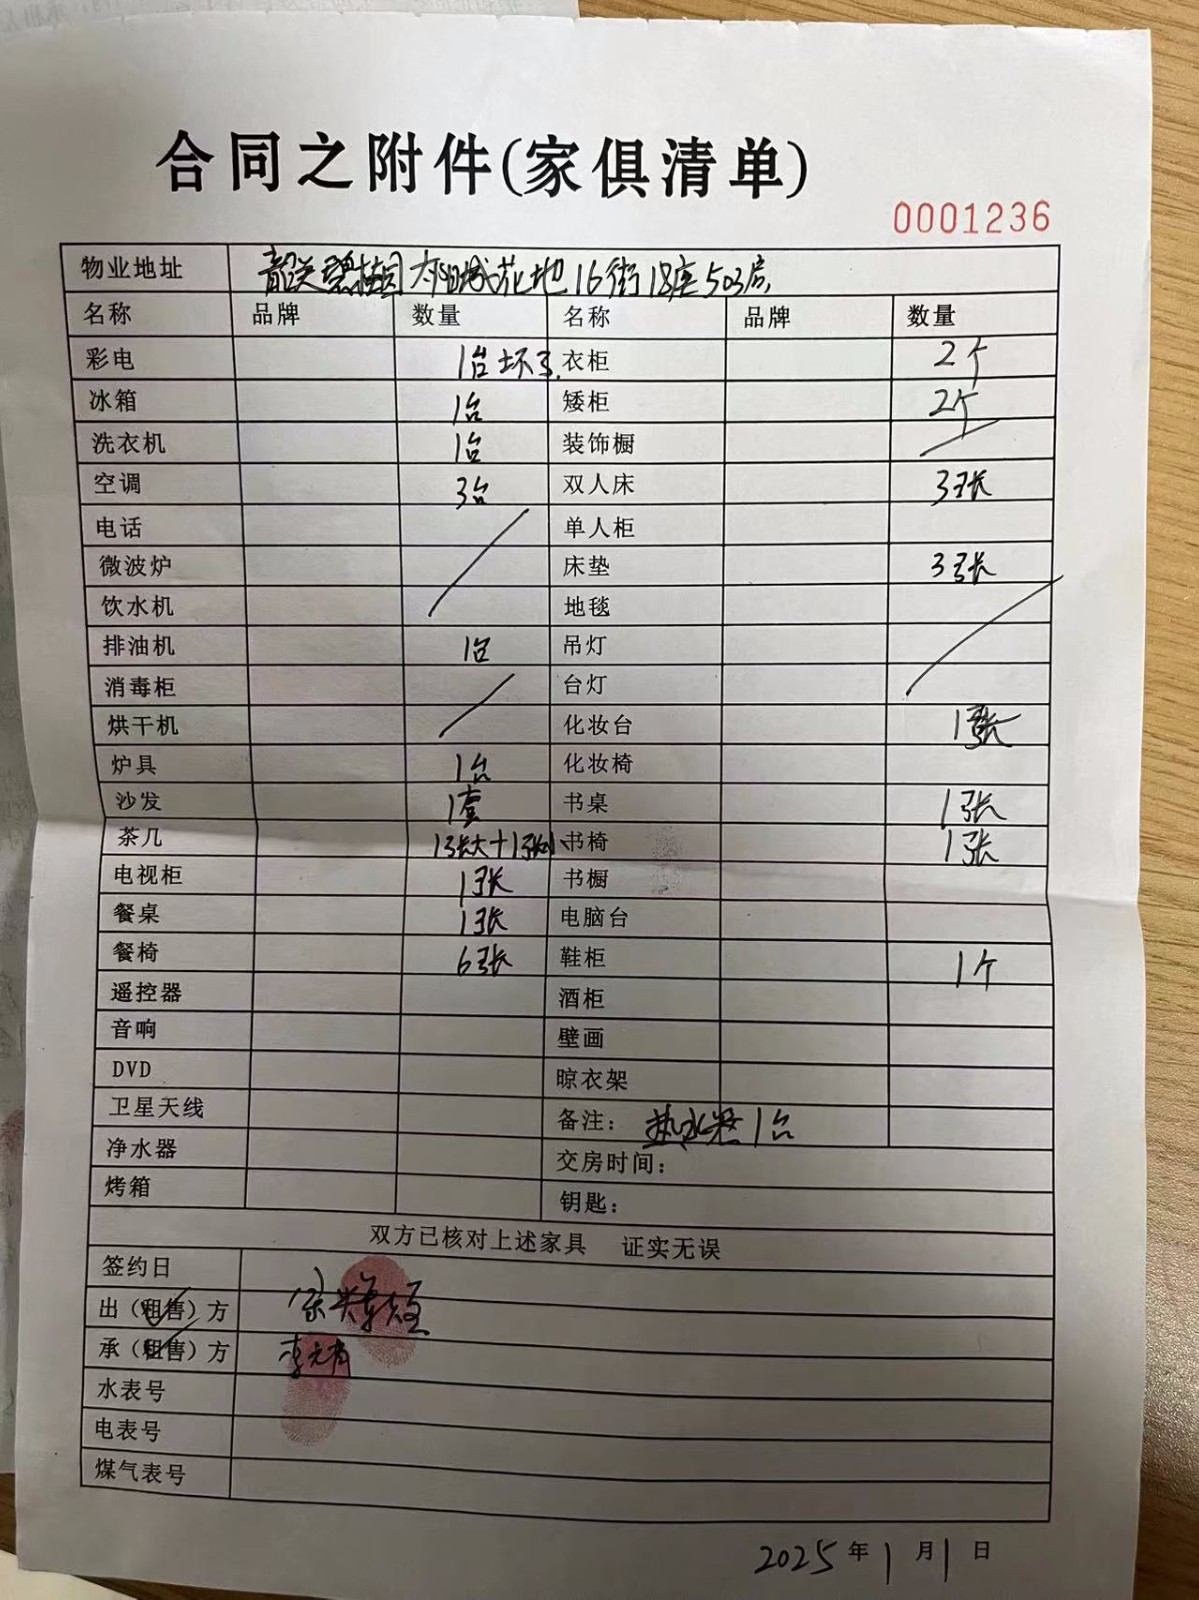 合同之附件(家俱清单)
0001236
物业地址 韶关碧桂园太阳城花地16街18座503房
名称 品牌 数量 名称 品牌 数量
彩电 1台坏了 衣柜 2个
冰箱 1台 矮柜 2个
洗衣机 1台 装饰橱
空调 3台 双人床 3张
电话 单人柜
微波炉 床垫 3张
饮水机 地毯
排油机 1台 吊灯
消毒柜 台灯
烘干机 化妆台 1张
炉具 1台 化妆椅
沙发 1套 书桌 1张
茶几 1张大+1张小 书椅 1张
电视柜 1张 书橱
餐桌 1张 电脑台
餐椅 6张 鞋柜 1个
遥控器 酒柜
音响 壁画
DVD 晾衣架
卫星天线 备注: 热水器1台
净水器 交房时间:
烤箱 钥匙:
双方已核对上述家具 证实无误
签约日
出(租售)方
承(租售)方
水表号
电表号
煤气表号
2025年1月1日